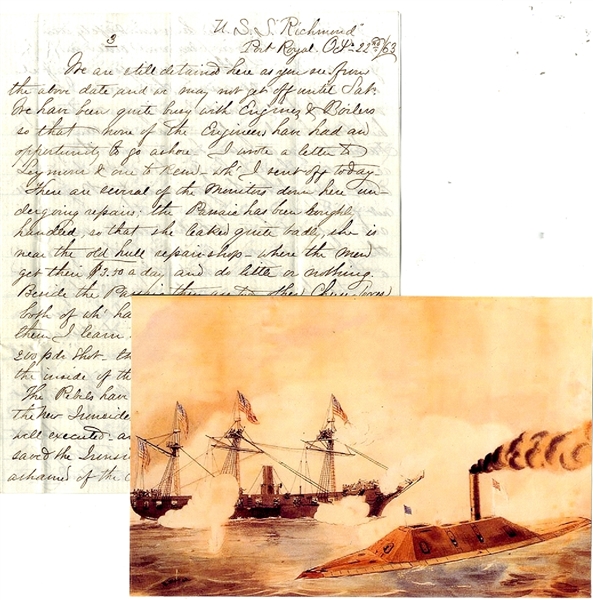 3
U. S. S. "Richmond"
Port Royal. Oct. 22nd /63
We are still detained here as you see from
the above date and we may not get off until Sat.
We have been quite busy with Engines & Boilers
so that none of the Engineers have had an
opportunity to go ashore. I wrote a letter to
Seymour & one to Kem - wh' I sent off today
There are several of the Monitors down here un-
dergoing repairs; the Passaic has been roughly
handled, so that she leaked quite badly, she is
near the old hull repairshop - where the men
get their $3.50 a day and do little or nothing.
Beside the Passaic there are two other
both of wh' ha
them I learn
200 pdr Shot.
the inside of th
The Rebels have
the New Ironside
well executed - a
saved the Ironsi
ashamed of the